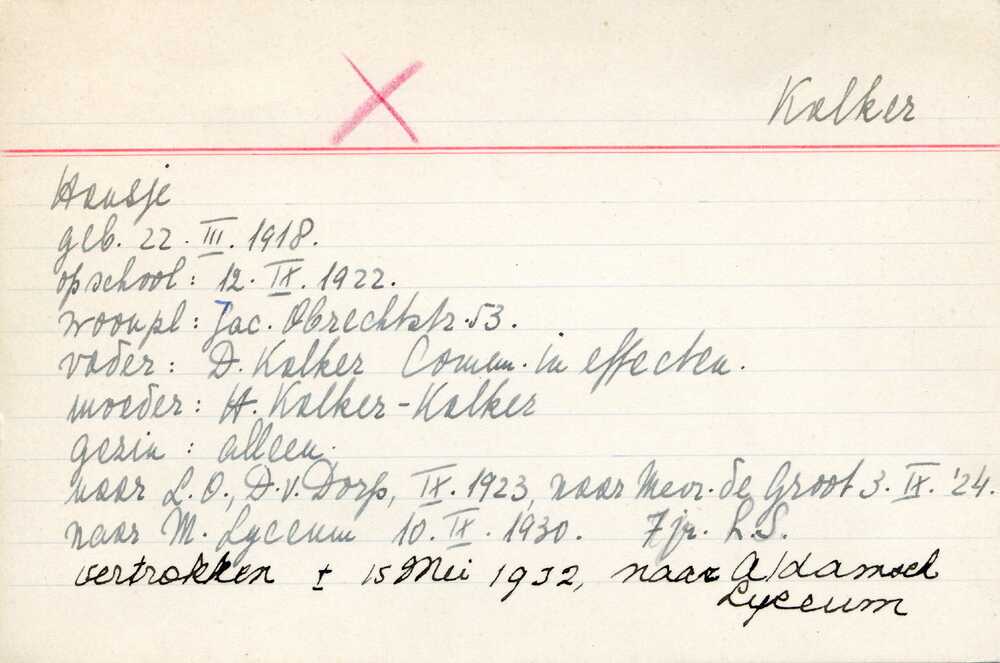 Kalker
Hansje
geb. 22. III. 1918.
op school: 12. IX. 1922.
woonpl: Jac. Obrechtstr. 53.
vader: D. Kalker Comm. in effecten.
moeder: H. Kalker-Kalker
gezin: alleen.
naar L.O., D.v. Dorp, IX. 1923, naar Mevr. de Groot 3. IX. '24.
naar M. Lyceum 10. IX. 1930. 7 jr. L.S.
vertrokken ± 15 Mei 1932, naar A/damsch
Lyceum